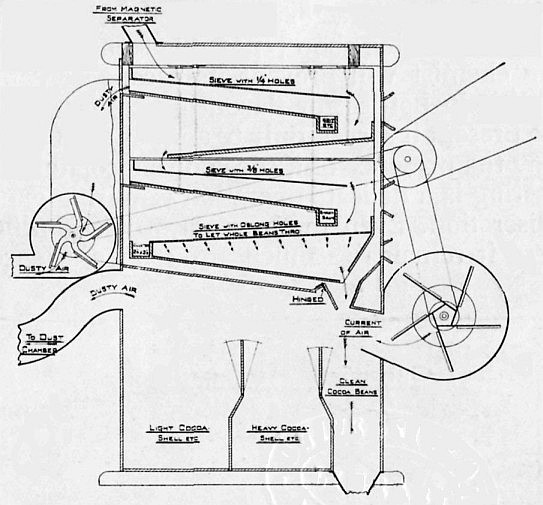 FROM MAGNETIC
SEPARATOR
SIEVE WITH 1/4" HOLES
DUSTY
AIR
SIEVE WITH 3/8" HOLES
SIEVE WITH OBLONG HOLES
TO LET WHOLE BEANS THRO
DUSTY AIR
DUSTY AIR
HINGED
TO DUST
CHAMBER
CURRENT
OF AIR
CLEAN
COCOA BEANS
LIGHT COCOA-
SHELL ETC
HEAVY COCOA-
SHELL ETC